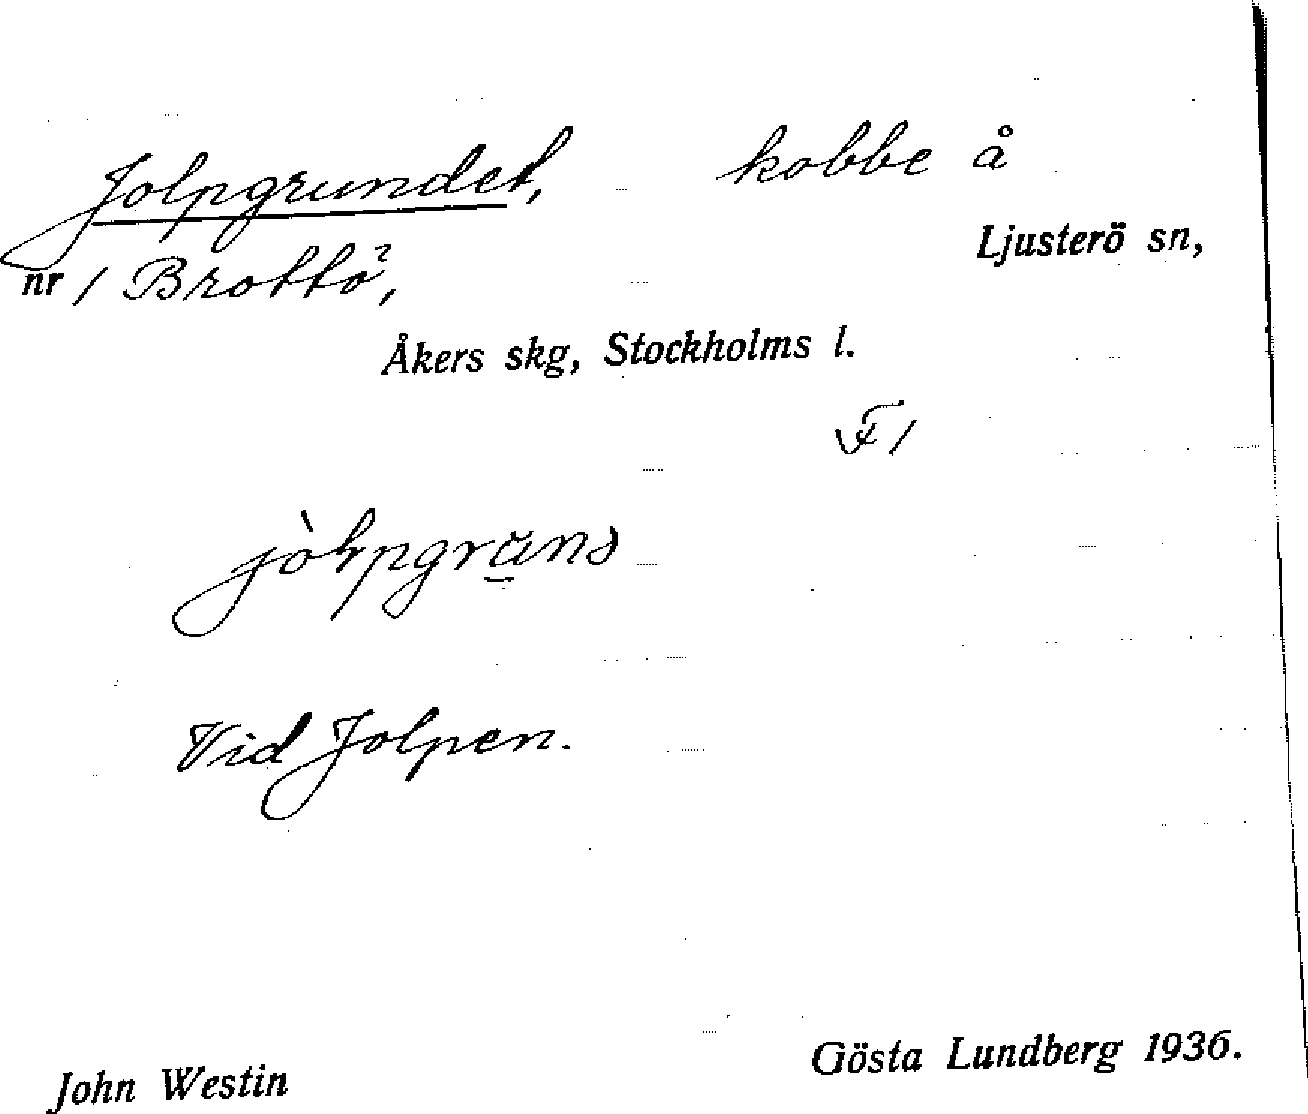 Jolpgrundet, kobbe å
Ljusterö sn,
nr 1 Brottö,
Åkers skg, Stockholms l.
F1
Vid Jolpen.
John Westin Gösta Lundberg 1936.